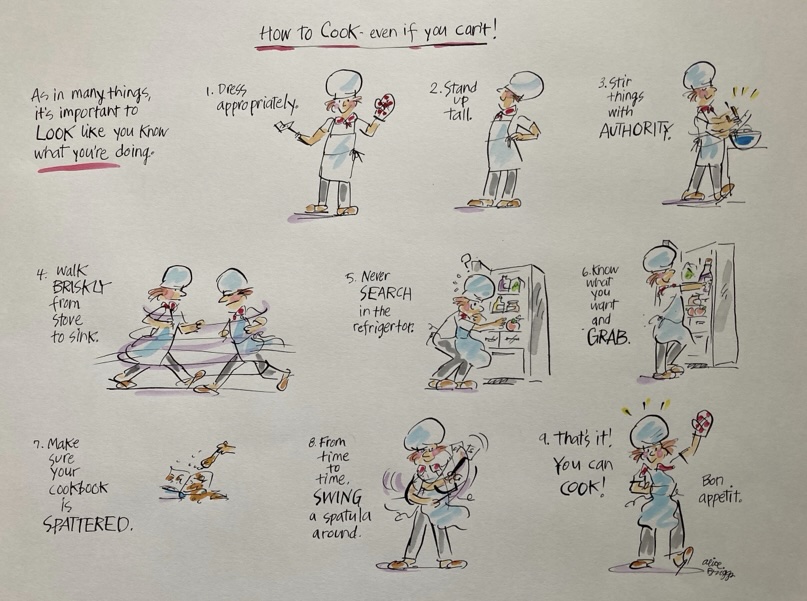 How to Cook - even if you can't!
As in many things,
it's important to
LOOK like you know
what you're doing.
1. Dress
appropriately.
2. Stand
up
tall.
3. Stir
things
with
AUTHORITY.
4. Walk
BRISKLY
from
stove
to sink.
5. Never
SEARCH
in the
refrigertor.
6. Know
what
you
want
and
GRAB.
7. Make
sure
your
cookbook
is
SPATTERED.
8. From
time
to
time,
SWING
a spatula
around.
9. That's it!
You can
COOK!
Bon
appétit.
alice